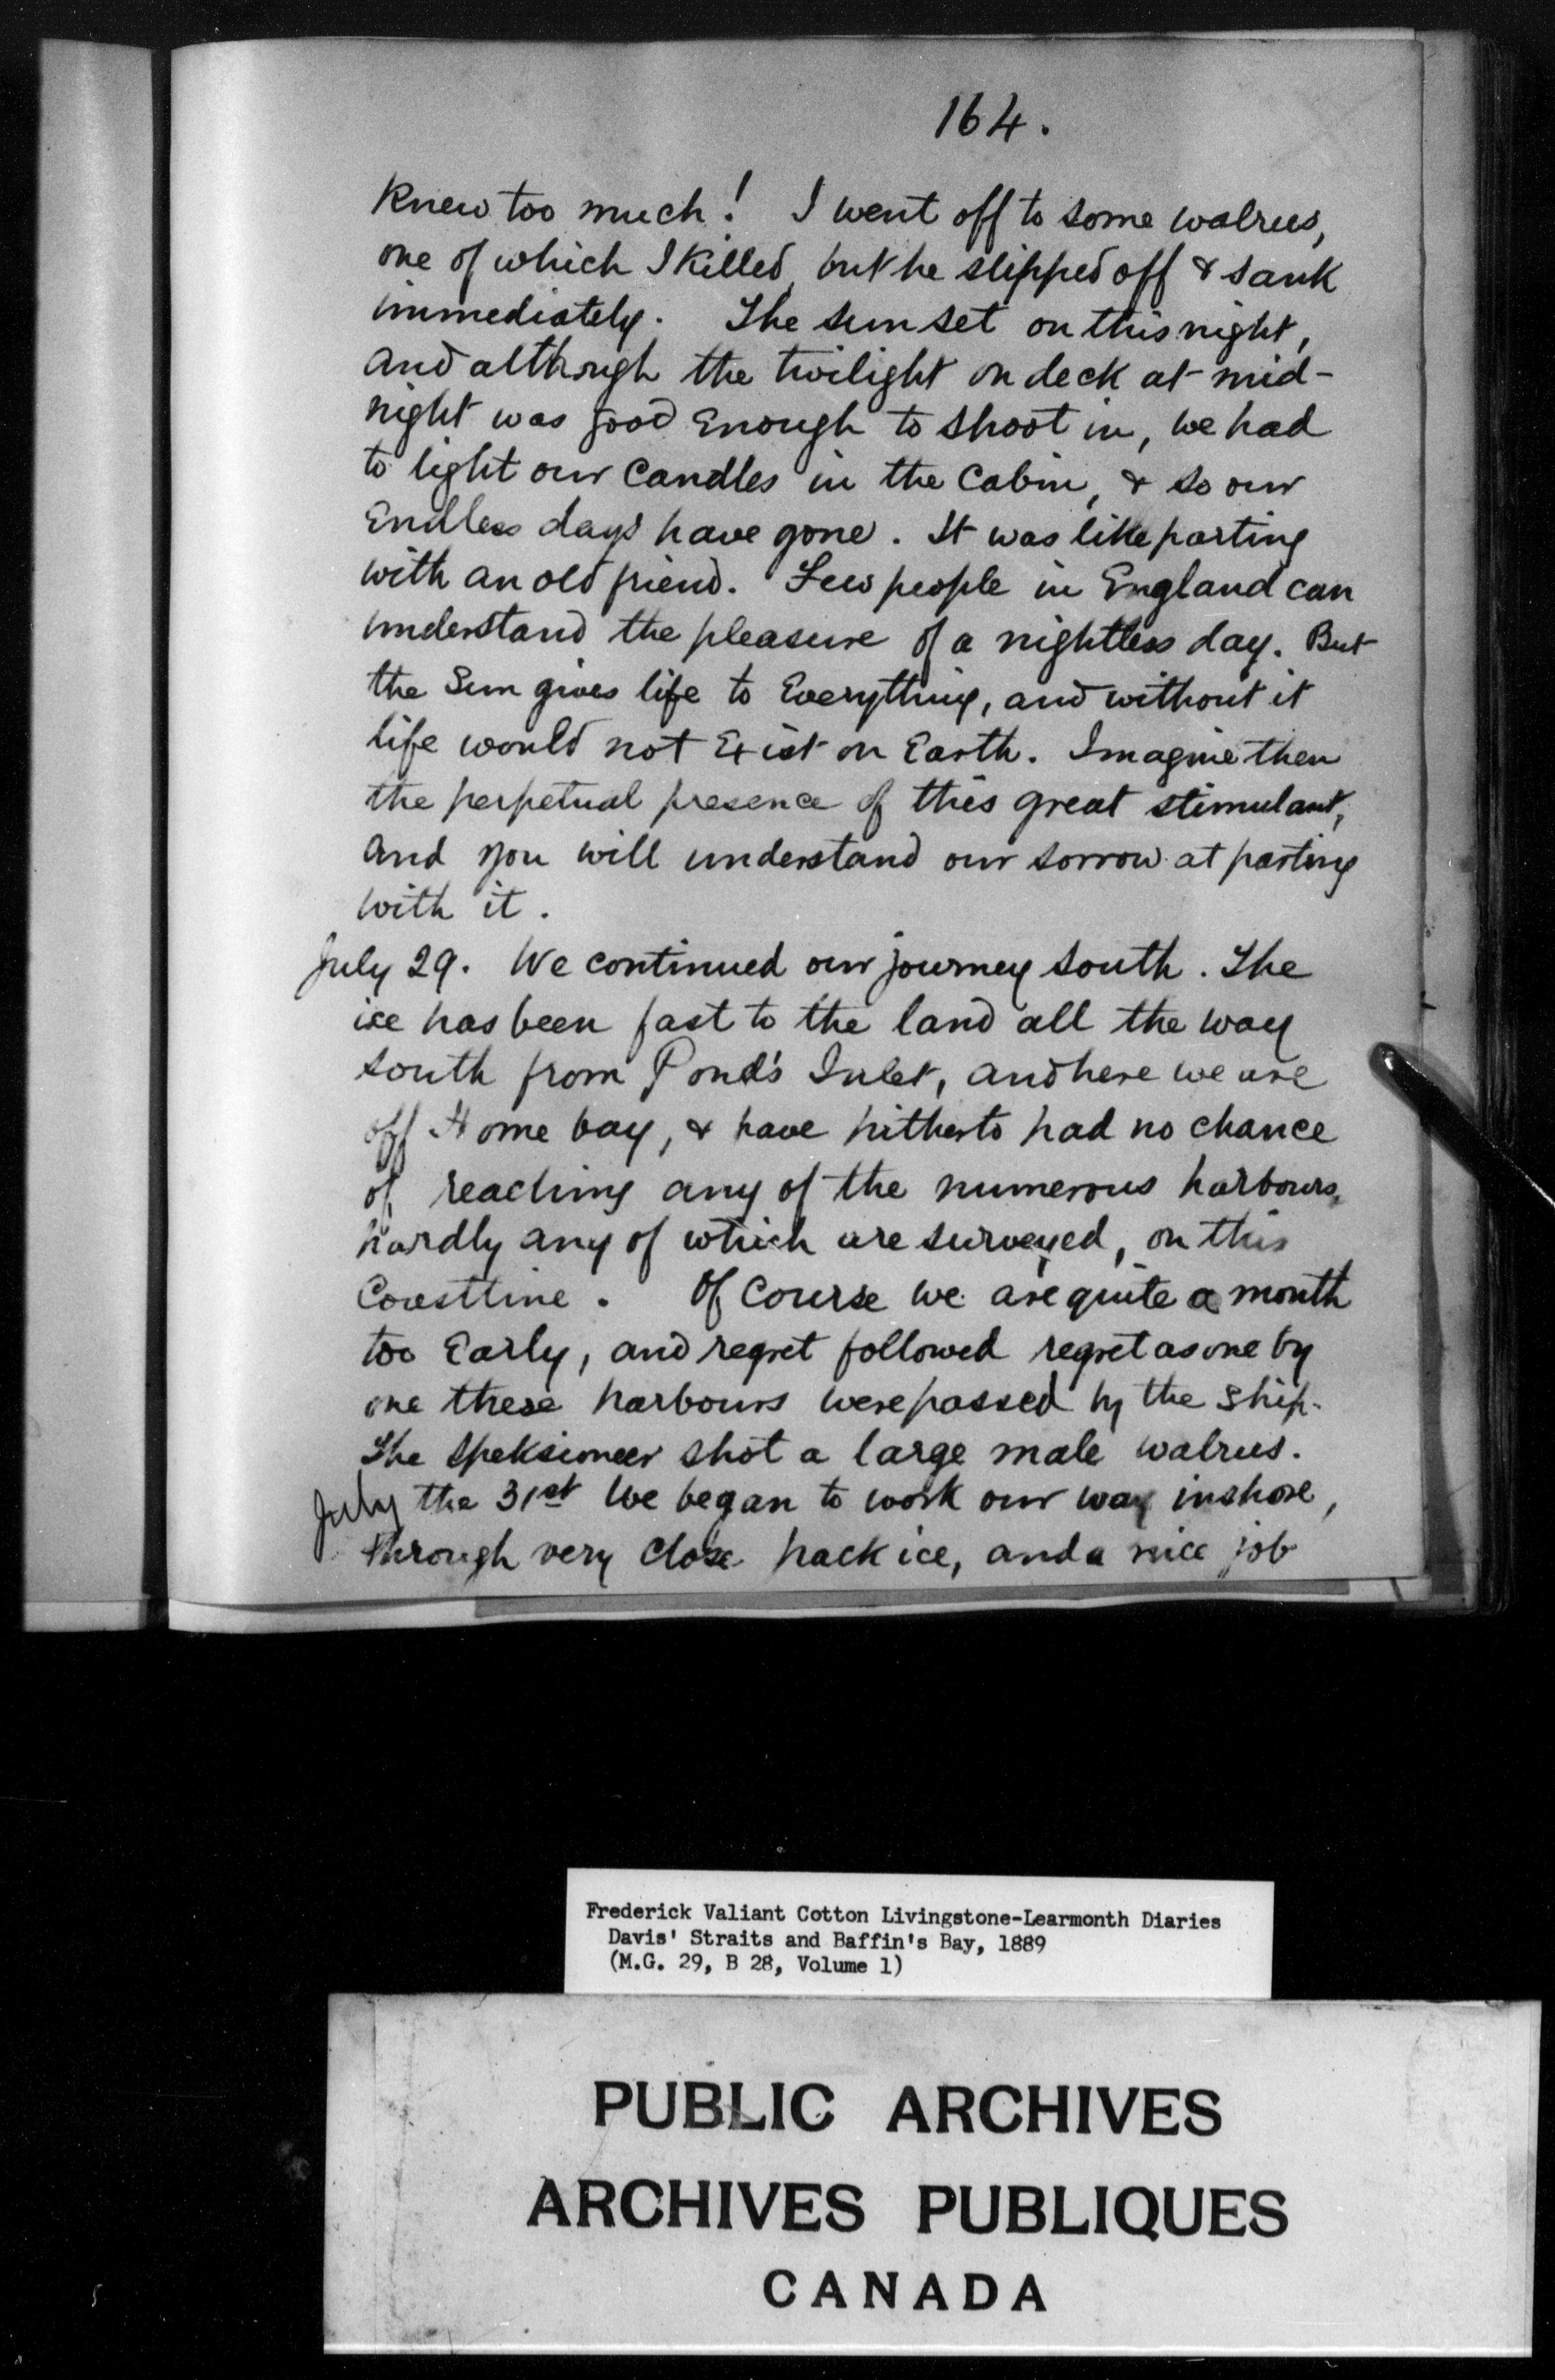 164.
Knew too much! I went off to some walrus,
one of which I killed, but he slipped off & sank
immediately. The sun set on this night,
and although the twilight on deck at mid-
night was good Enough to shoot in, we had
to light our Candles in the Cabin, & so our
Endless days have gone. It was like parting
with an old friend. Few people in England can
understand the pleasure of a nightless day. But
the Sun gives life to Everything, and without it
life would not Exist on Earth. Imagine then
the perpetual presence of this great stimulant,
and you will understand our sorrow at parting
with it.
July 29. We continued our journey south. The
ice has been fast to the land all the way
south from Pond's Inlet, and here we are
off Home bay, & have hitherto had no chance
of reaching any of the numerous harbours,
hardly any of which are surveyed, on this
Coastline. Of Course we are quite a month
too Early, and regret followed regret as one by
one these harbours were passed by the ship.
The Speksioneer shot a large male walrus.
July the 31st We began to work our way inshore,
through very close pack ice, and a nice job
Frederick Valiant Cotton Livingstone-Learmonth Diaries
Davis' Straits and Baffin's Bay, 1889
(M.G. 29, B 28, Volume 1)
PUBLIC ARCHIVES
ARCHIVES PUBLIQUES
CANADA